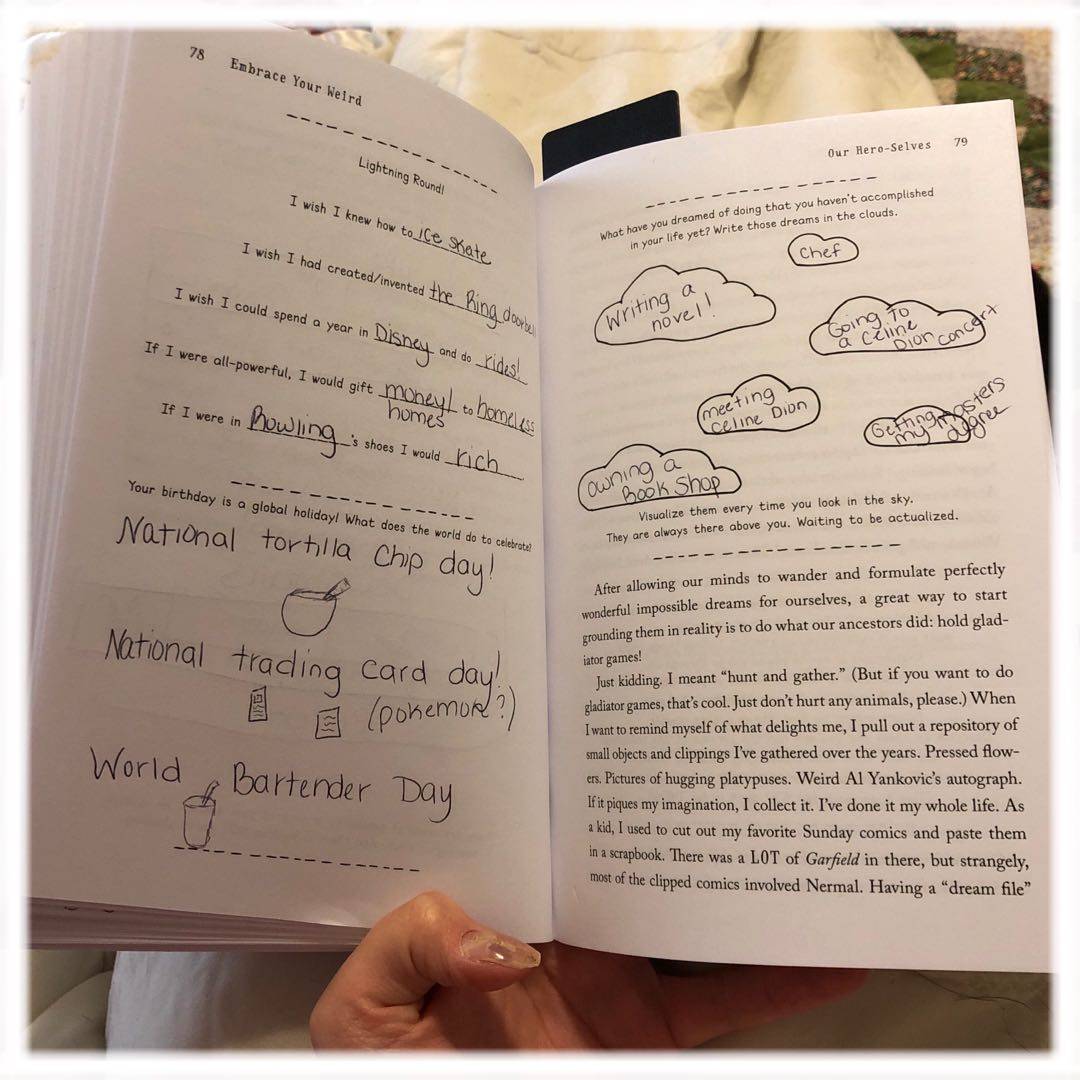 78 Embrace Your Weird
Lightning Round!
I wish I knew how to ice skate
I wish I had created/invented the Ring doorbell
I wish I could spend a year in Disney and do rides!
If I were all-powerful, I would gift money/ to homeless
homes
If I were in Rowling's shoes I would rich
Your birthday is a global holiday! What does the world do to celebrate?
National tortilla chip day!
National trading card day!
(pokemon?)
World Bartender Day
Our Hero-Selves 79
What have you dreamed of doing that you haven't accomplished
in your life yet? Write those dreams in the clouds.
Chef
Writing a
novel!
Going To
a Celine
Dion concert
meeting
Celine Dion
Getting
my masters
degree
Owning a
Book Shop
Visualize them every time you look in the sky.
They are always there above you. Waiting to be actualized.
After allowing our minds to wander and formulate perfectly
wonderful impossible dreams for ourselves, a great way to start
grounding them in reality is to do what our ancestors did: hold glad-
iator games!
Just kidding. I meant “hunt and gather.” (But if you want to do
gladiator games, that's cool. Just don't hurt any animals, please.) When
I want to remind myself of what delights me, I pull out a repository of
small objects and clippings I've gathered over the years. Pressed flow-
ers. Pictures of hugging platypuses. Weird Al Yankovic's autograph.
If it piques my imagination, I collect it. I've done it my whole life. As
a kid, I used to cut out my favorite Sunday comics and paste them
in a scrapbook. There was a LOT of Garfield in there, but strangely,
most of the clipped comics involved Nermal. Having a “dream file”